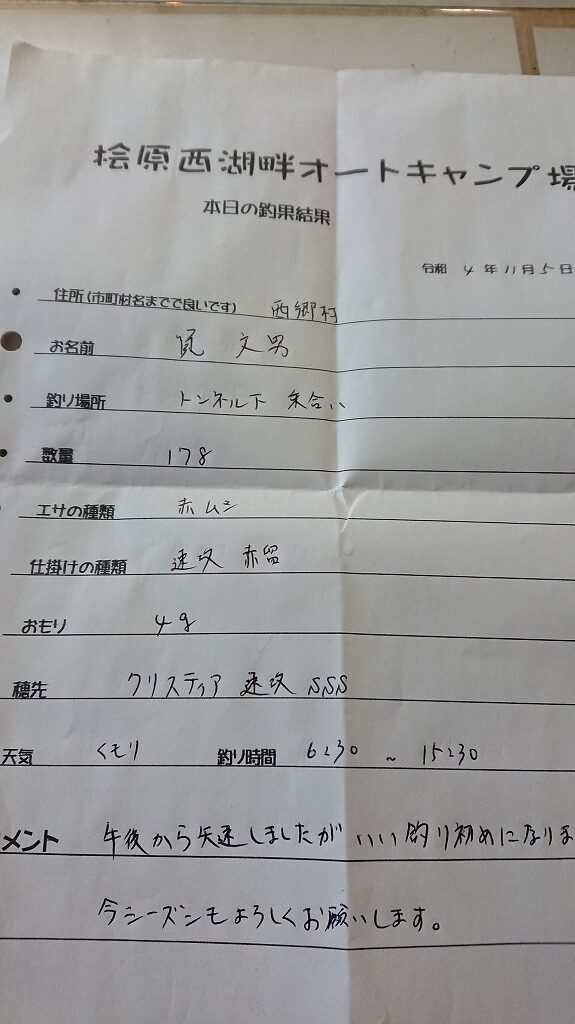 桧原西湖畔オートキャンプ場
本日の釣果結果
令和 4 年 11 月 5 日
住所(市町村名までで良いです) 西郷村
お名前 文男
釣り場所 トンネル下 乗合い
数量 178
エサの種類 赤ムシ
仕掛けの種類 速攻 赤留
おもり 4g
穂先 クリスティア 速攻 SSS
天気 くもり 釣り時間 6:30 ~ 15:30
メント 午後から失速しましたが いい釣り初めになりま
今シーズンもよろしくお願いします。